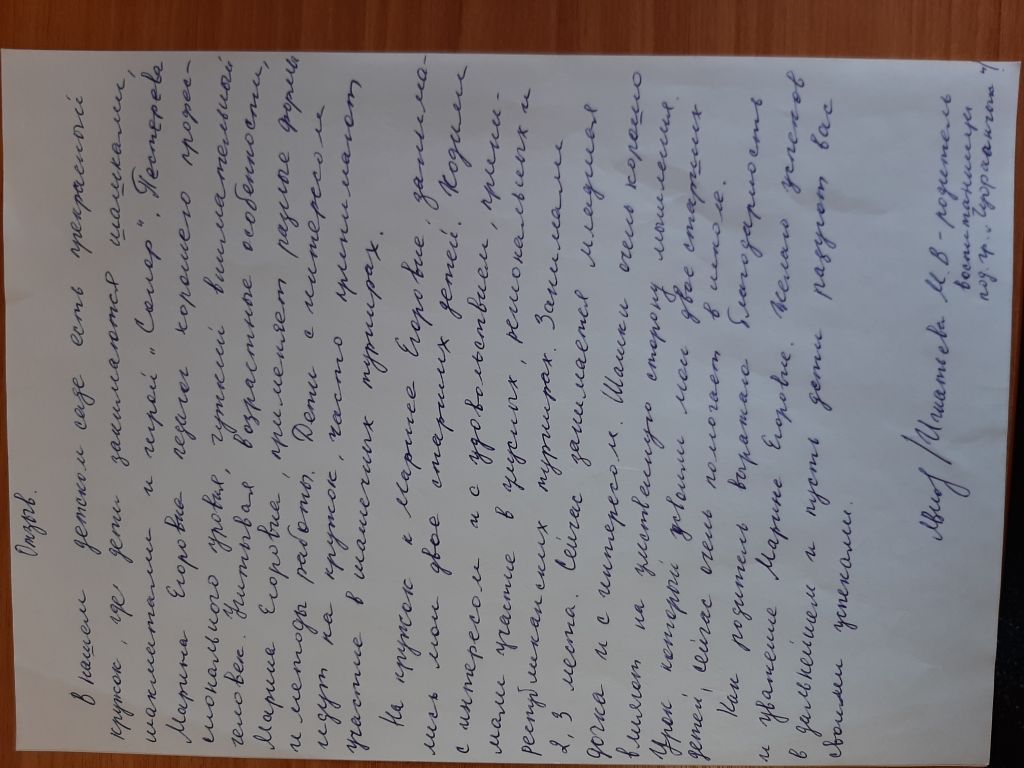 Отзыв.
В нашем детском саде есть прекрасный
кружок, где дети занимаются шашками,
шахматами и игрой „Сонор". Пестерева
Марина Егоровна педагог хорошего профес-
сионального уровня, чуткий внимательный
человек. Учитывая возрастные особенности,
Марина Егоровна, применяет разные формы
и методы работы. Дети с интересом
идут на кружок, часто принимают
участие в шашечных турнирах.
На кружок к Марине Егоровне занима-
лись мои двое старших детей. Ходили
с интересом и с удовольствием, прини-
мали участие в улусных, региональных и
республиканских турнирах. Занимали
2, 3 места. Сейчас занимается младшая
дочка и с интересом. Шашки очень хорошо
влияет на умственную сторону мышления.
Урок который усвоили мои двое старших
детей, сейчас очень помогает в школе.
Как родитель выражаю благодарность
и уважение Марине Егоровне. Желаю успехов
в дальнейшем и пусть дети радуют вас
своими успехами.
М.В - родитель
воспитанницы
под. гр.